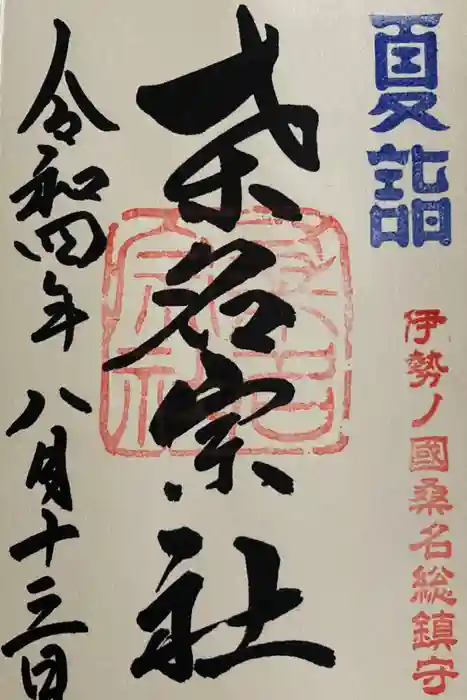 夏詣
伊勢ノ國桑名総鎮守
桑名宗社
桑名
宗社
令和四年 八月十三日